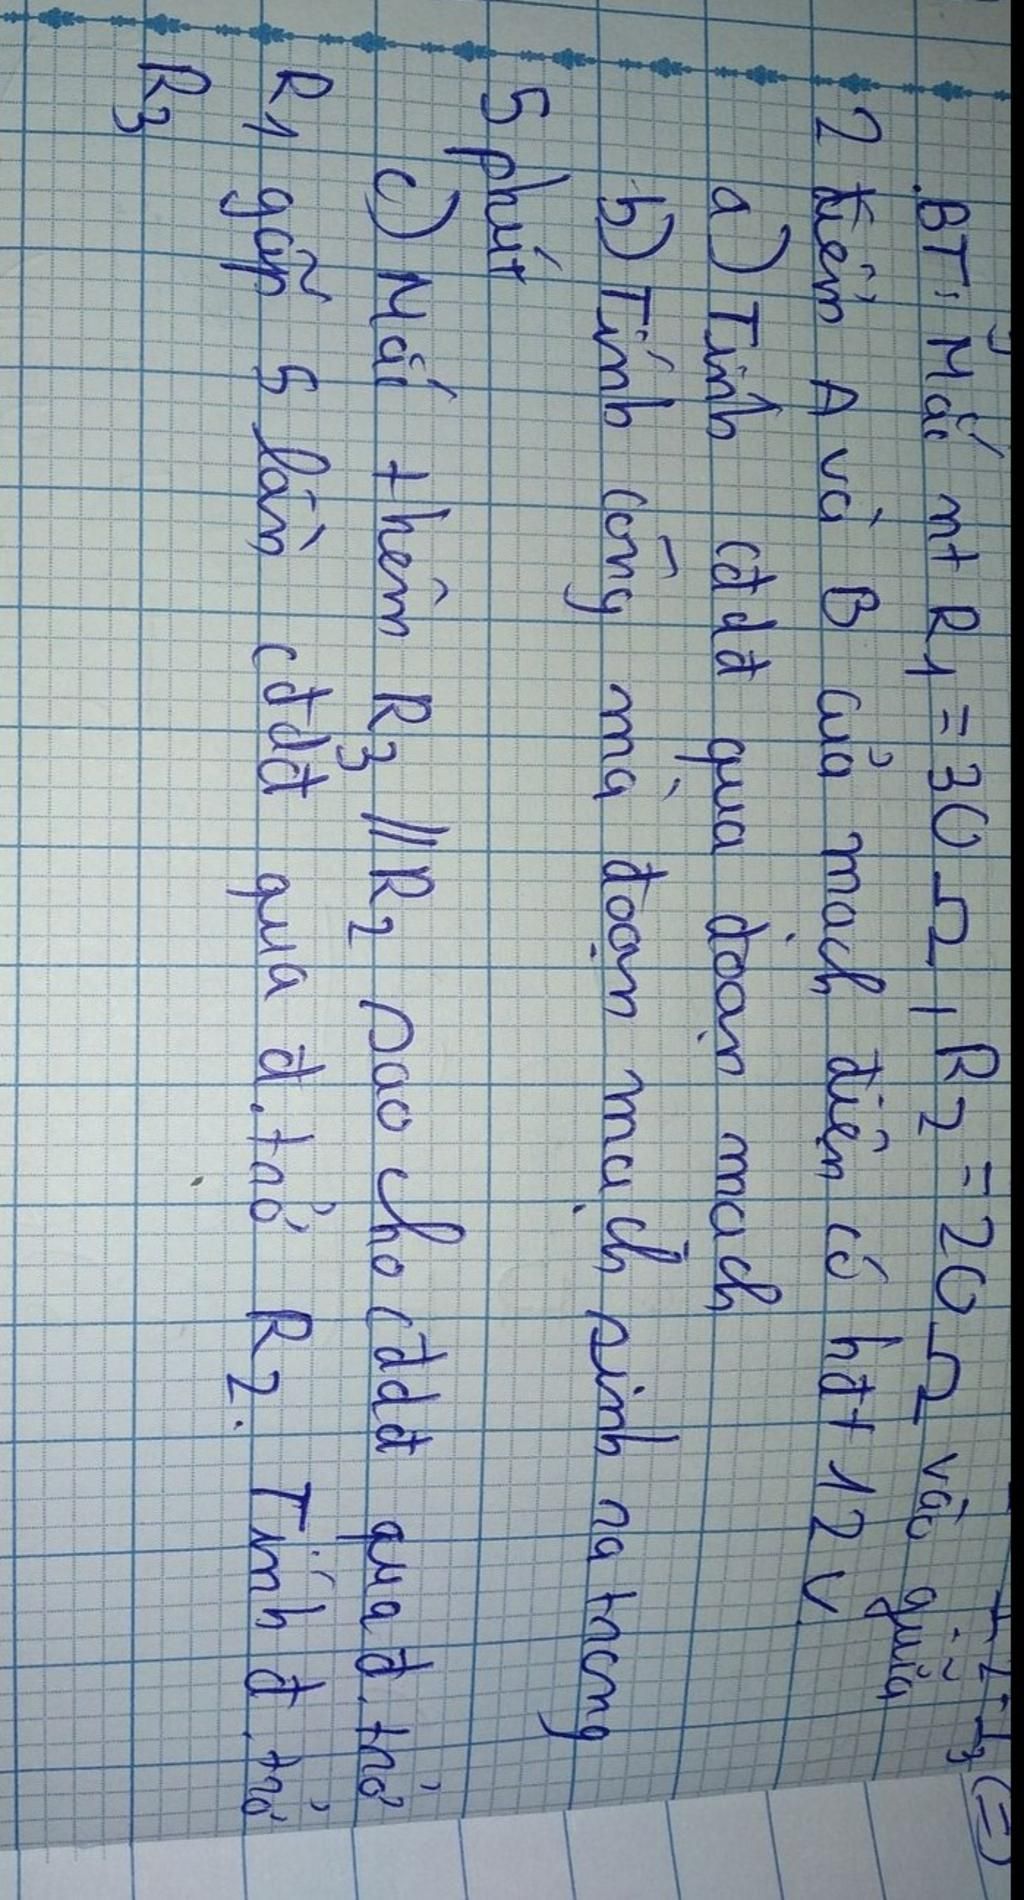 BT: Mắc nt R1 = 30 Ω, R2 = 20 Ω vào giữa
2 điểm A và B của mạch điện có hđt 12 V
a) Tính cđdđ qua đoạn mạch
b) Tính công mà đoạn mạch sinh ra trong
5 phút
c) Mắc thêm R3 // R2 sao cho cđdđ qua đ.trở
R1 gấp 5 lần cđdđ qua đ.trở R2. Tính đ.trở
R3